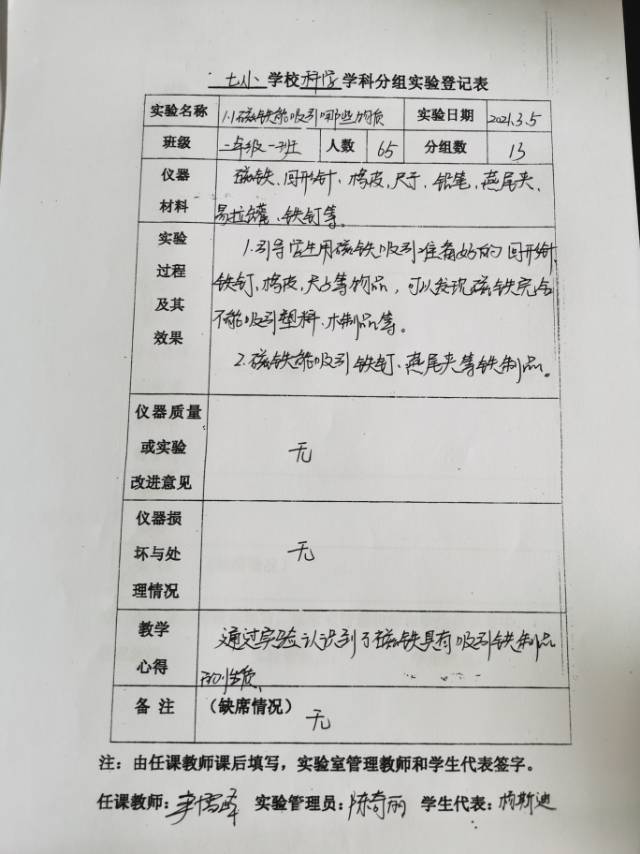 七小 学校 科学 学科分组实验登记表
实验名称 1.1磁铁能吸引哪些物质 实验日期 2021.3.5
班级 一班 人数 65 分组数 13
仪器材料 磁铁、回形针、橡皮、尺子、铅笔、燕尾夹、
易拉罐、铁钉等。
实验过程及其效果 1.引导学生用磁铁吸引准备好的回形针、
铁钉、橡皮、尺子等物品，可以发现磁铁完全
不能吸引塑料、木制品等。
2.磁铁能吸引铁钉、燕尾夹等铁制品。
仪器质量或实验改进意见 无
仪器损坏与处理情况 无
教学心得 通过实验认识到了磁铁具有吸引铁制品
的性质
备注 （缺席情况） 无
注：由任课教师课后填写，实验室管理教师和学生代表签字。
任课教师： 实验管理员：陈奇丽 学生代表：杨斯迪